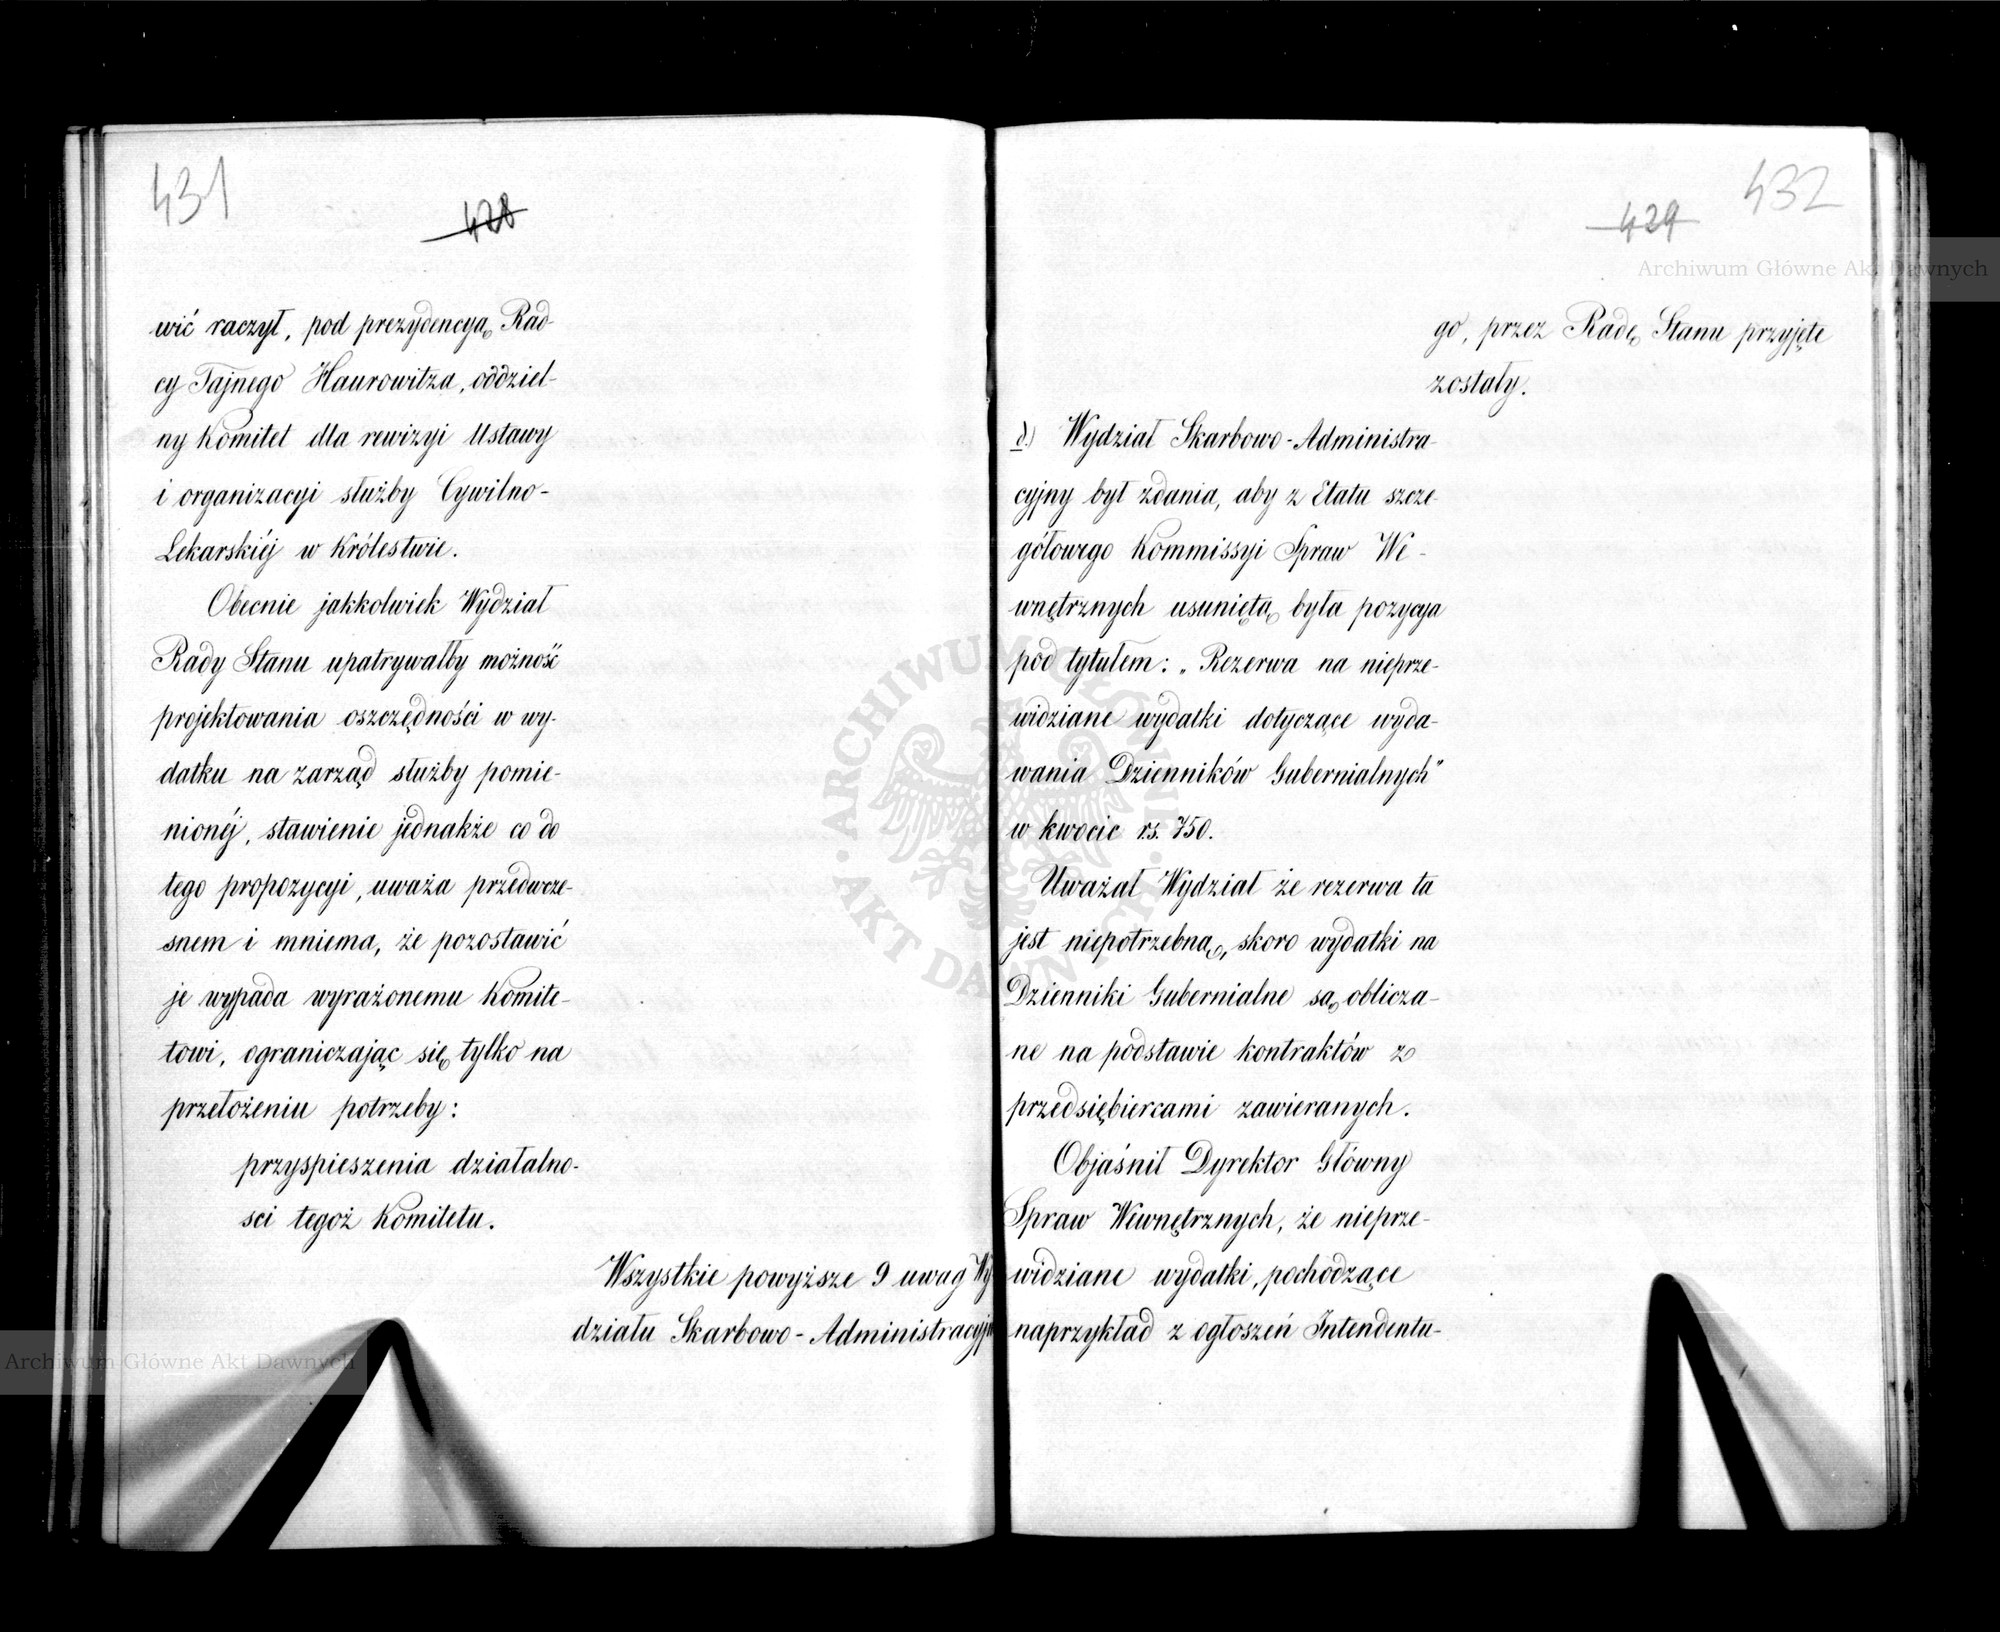 431
428
wić raczył, pod prezydencyą Rad-
cy Tajnego Haurowitza, oddziel-
ny Komitet dla rewizyi Ustawy
i organizacyi służby Cywilno-
Lekarskiéj w Królestwie.
Obecnie jakkolwiek Wydział
Rady Stanu upatrywałby możność
projektowania oszczędności w wy-
datku na zarząd służby pomie-
nionéj, stawienie jednakże co do
tego propozycyi, uważa przedwcze-
snem i mniema, że pozostawić
je wypada wyrażonemu Komite-
towi, ograniczając się tylko na
przełożeniu potrzeby:
przyspieszenia działalno-
sci tegoż Komitetu.
Wszystkie powyższe 9 uwag Wy
działu Skarbowo-Administracyjn
432
429
go, przez Radę Stanu przyjęte
zostały.
d.) Wydział Skarbowo-Administra-
cyjny był zdania, aby z Etatu szcze-
gółowego Kommissyi Spraw We-
wnętrznych usuniętą była pozycya
pod tytułem: „Rezerwa na nieprze-
widziane wydatki dotyczące wyda-
wania Dzienników Gubernialnych"
w kwocie rs. 750.
Uważał Wydział że rezerwa ta
jest niepotrzebną, skoro wydatki na
Dzienniki Gubernialne są oblicza-
ne na podstawie kontraktów z
przedsiębiercami zawieranych.
Objaśnił Dyrektor Główny
Spraw Wewnętrznych, że nieprze-
widziane wydatki, pochodzące
naprzykład z ogłoszeń Intendentu-
Archiwum Główne Akt Dawnych
Archiwum Główne Akt Dawnych
ARCHIWUM GŁÓWNE AKT DAWNYCH